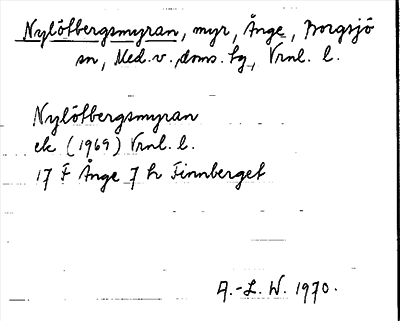 Nylötbergsmyran, myr, Ånge, Borgsjö
sn, Med. v. doms. tg, Vrnl. l.
Nylötbergsmyran
ek (1969) Vrnl. l.
17 F Ånge 7 h Finnberget
A.-L. W. 1970.